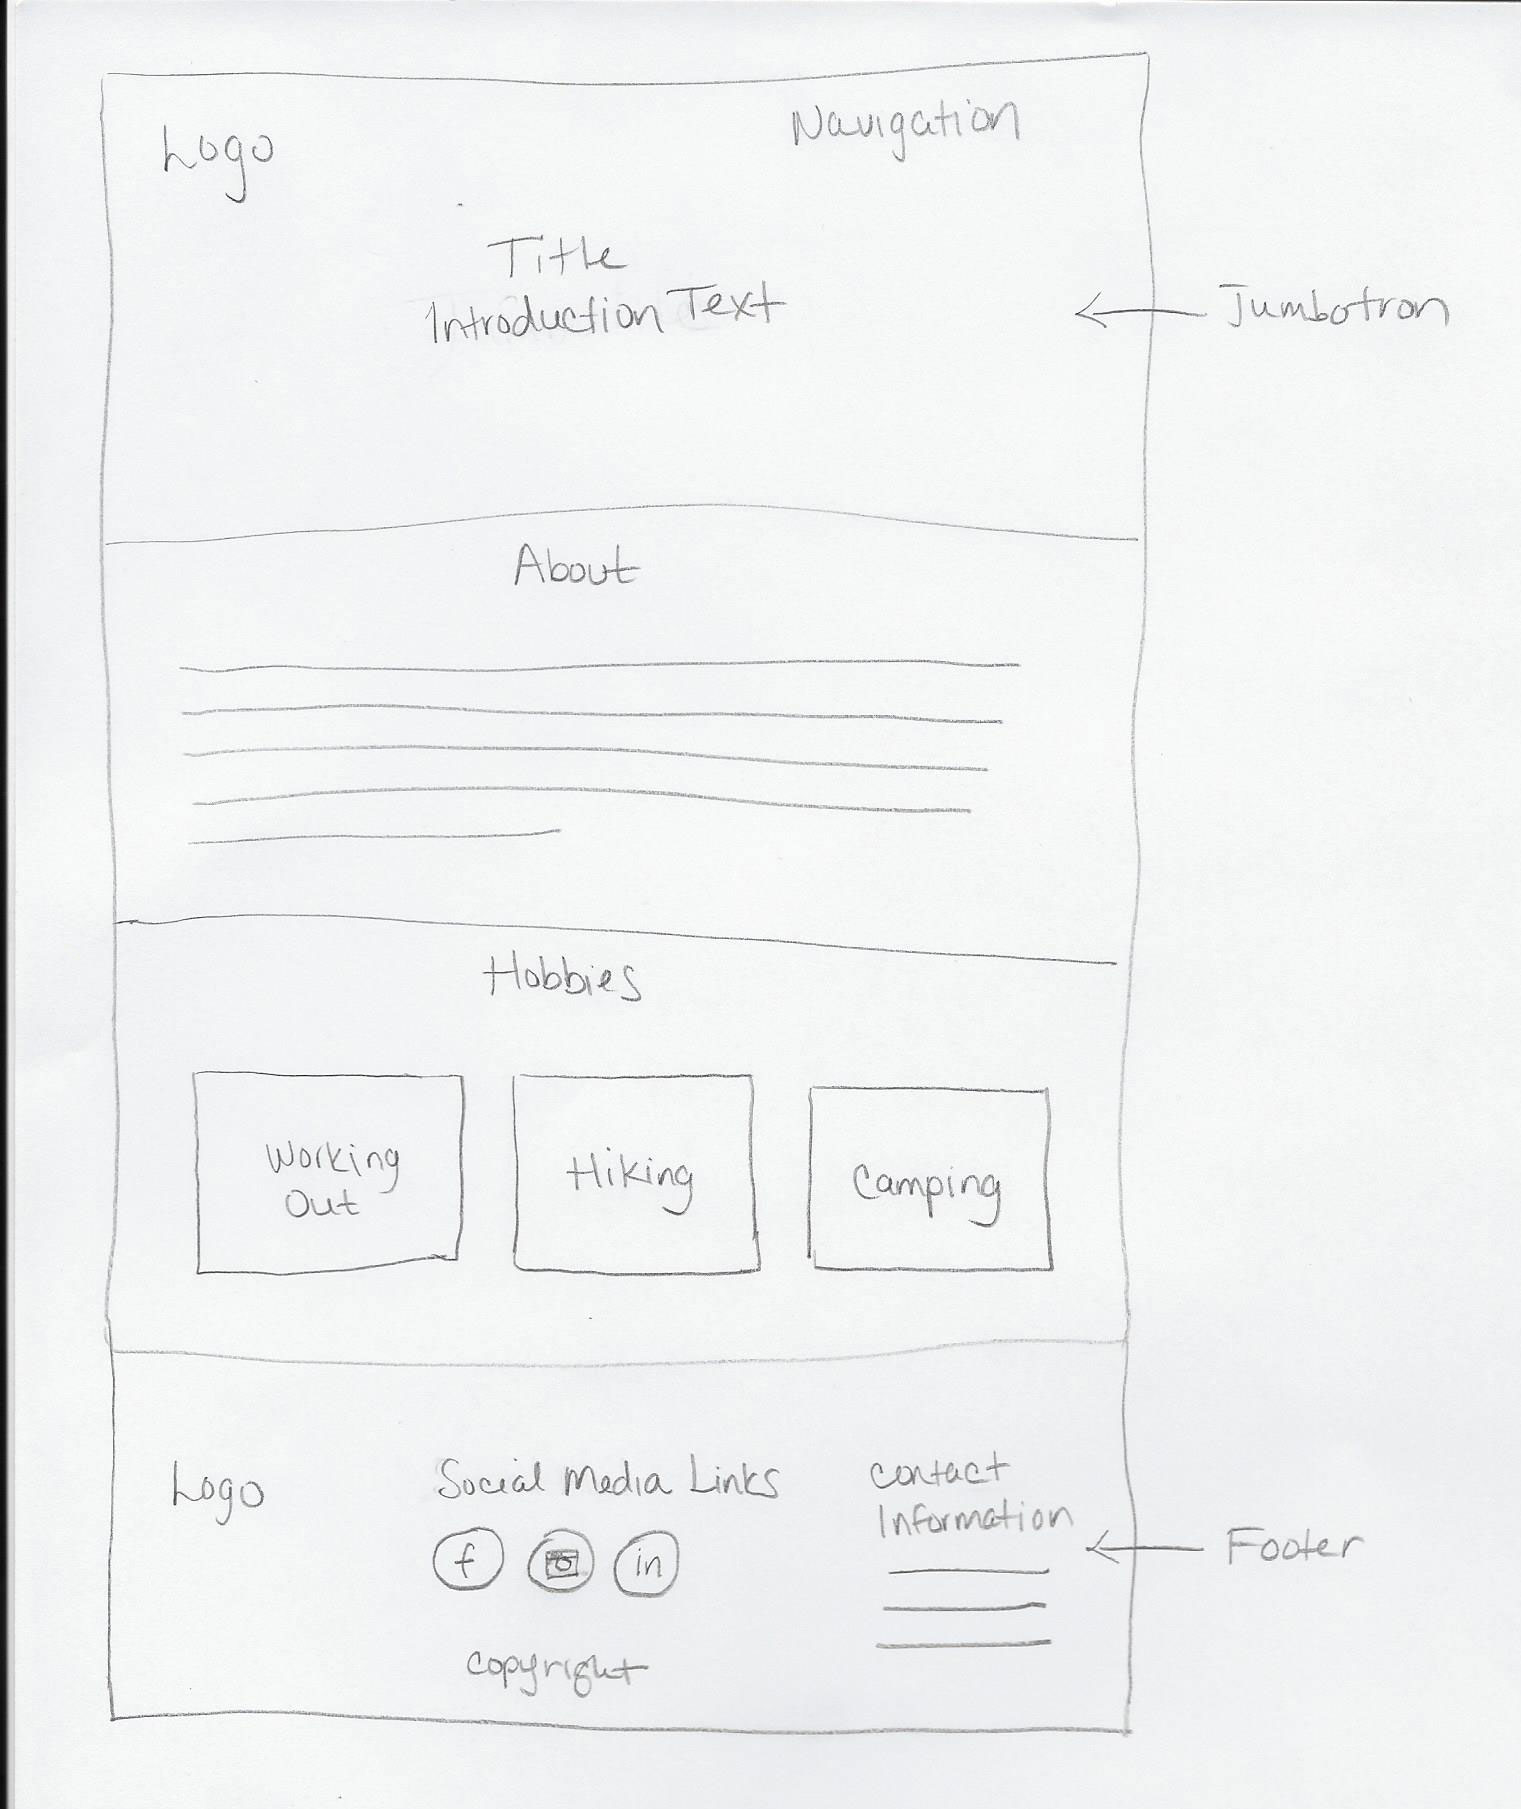 Logo
Navigation
Title
Introduction Text
Jumbotron
About
Hobbies
Working
Out
Hiking
Camping
Logo
Social Media Links
f
in
Contact
Information
Footer
Copyright